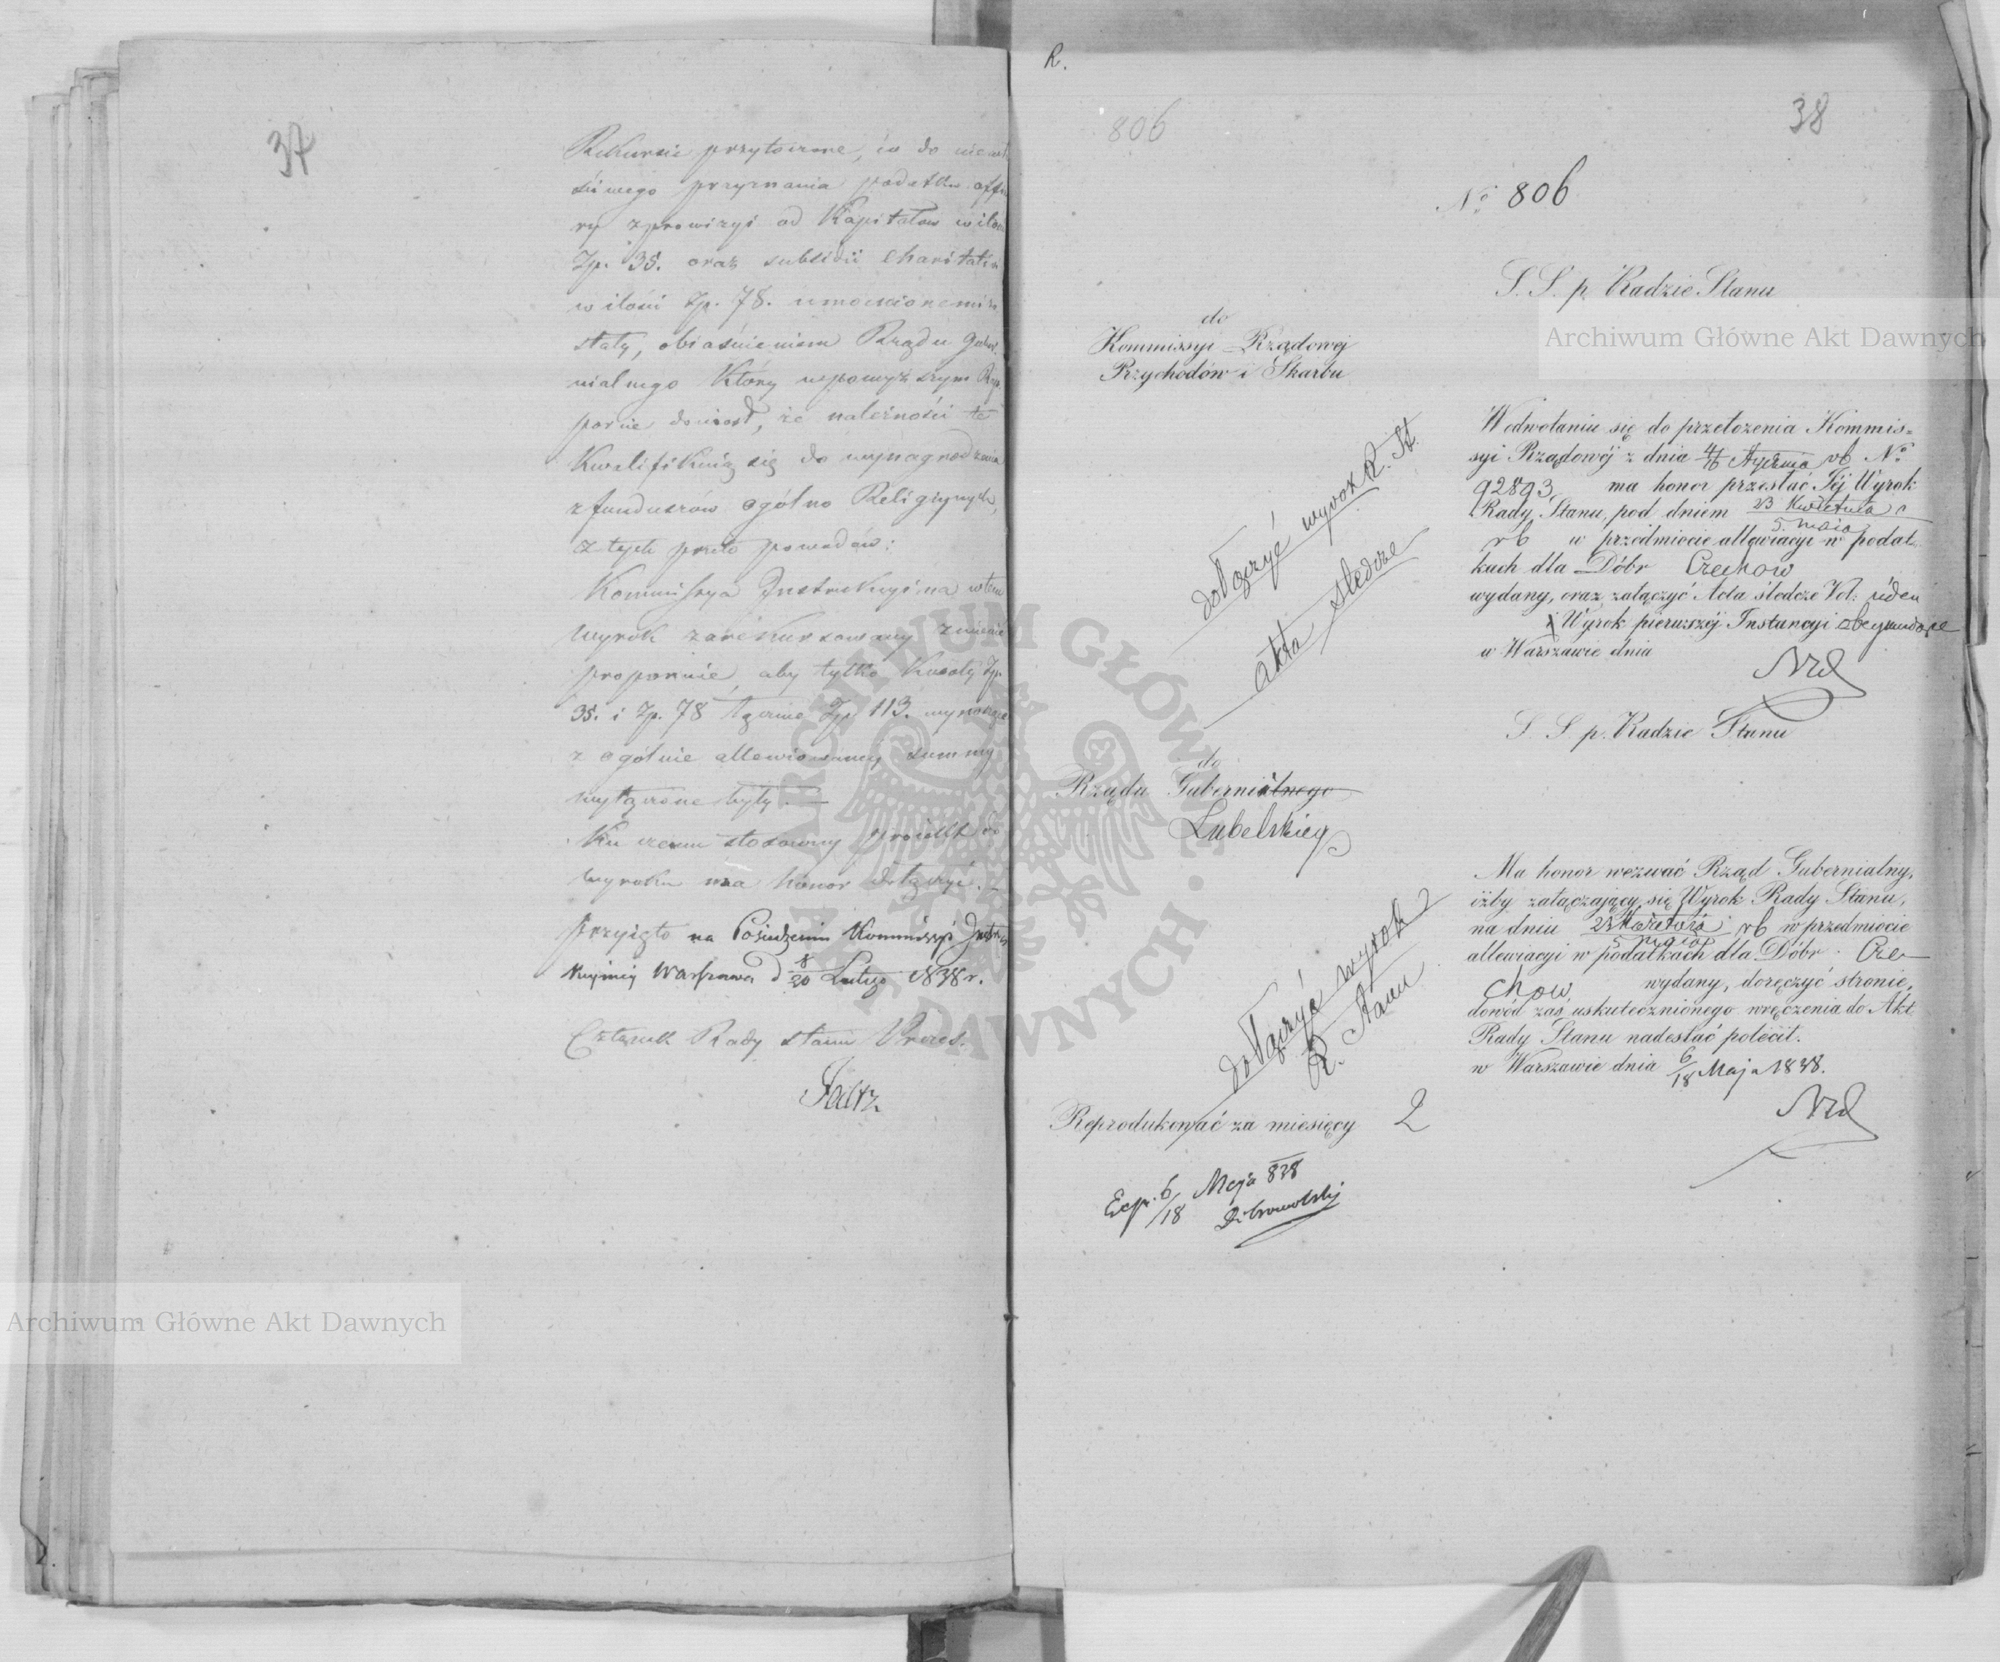 37
Rekursie przytoczone, co do niewła
ściwego przyznania podatku offia
ry z prowizyi od Kapitałów w ilości
Zp. 35. oraz subsidii charitativi
w ilości Zp. 78. umocnionemi zo
stały, obiaśnieniem Rządu Guber
nialnego który w powyższym Rap
porcie doniosł, że należności te
kwalifikuią się do wynagrodzenia
z funduszów ogólno Religijnych,
z tych przeto powodów:
Kommissya Instrukcyina w tem
wyrok zarekursowany zmienić
proponuie, aby tylko kwoty Zp.
35. i Zp. 78 łącznie Zp. 113. wynoszące
z ogólnie allewiowaney summy
wyłączone były. —
Ku czemu stosowny proiekt do
wyroku ma honor dołączyć. —
Przyięto na Posiedzeniu Kommissyi Instru
kcyiney Warszawa d 8/20 Lutego 1838 r.
Członek Rady Stanu Prezes.
R.
806
38
No 806
S. S. p. Radzie Stanu
do
Kommissyi Rządowej
Przychodów i Skarbu
W odwołaniu się do przełożenia Kommis=
syi Rządowéj z dnia 4/16 Stycznia rb No
92893, ma honor przesłać Jéj Wyrok
Rady Stanu, pod dniem 23 Kwietnia
5 maia
rb w przedmiocie allewiacyi w podat
kach dla Dóbr Czechow
wydany, oraz załączyć Acta śledcze Vol:
Wyrok pierwszéj Instancyi obeymuiące
w Warszawie dnia
dołączyć wyrok R. St.
akta śledcze
S. S. p. Radzie Stanu
do
Rządu Gubernialnego
Lubelskiego
Ma honor wezwać Rząd Gubernialny,
iżby załączający się Wyrok Rady Stanu,
na dniu 23 Kwietnia rb w przedmiocie
5 maia
allewiacyi w podatkach dla Dóbr Cze
chow wydany, doręczyć stronie,
dowód zaś uskutecznionego wręczenia do Akt
Rady Stanu nadesłać polecił.
w Warszawie dnia 6/18 Maja 1838.
dołączyć wyrok
R. Stanu
Reprodukować za miesięcy 2
Exp. 6/18 Maja 838
Archiwum Główne Akt Dawnych
Archiwum Główne Akt Dawnych
ARCHIWUM GŁÓWNE AKT DAWNYCH